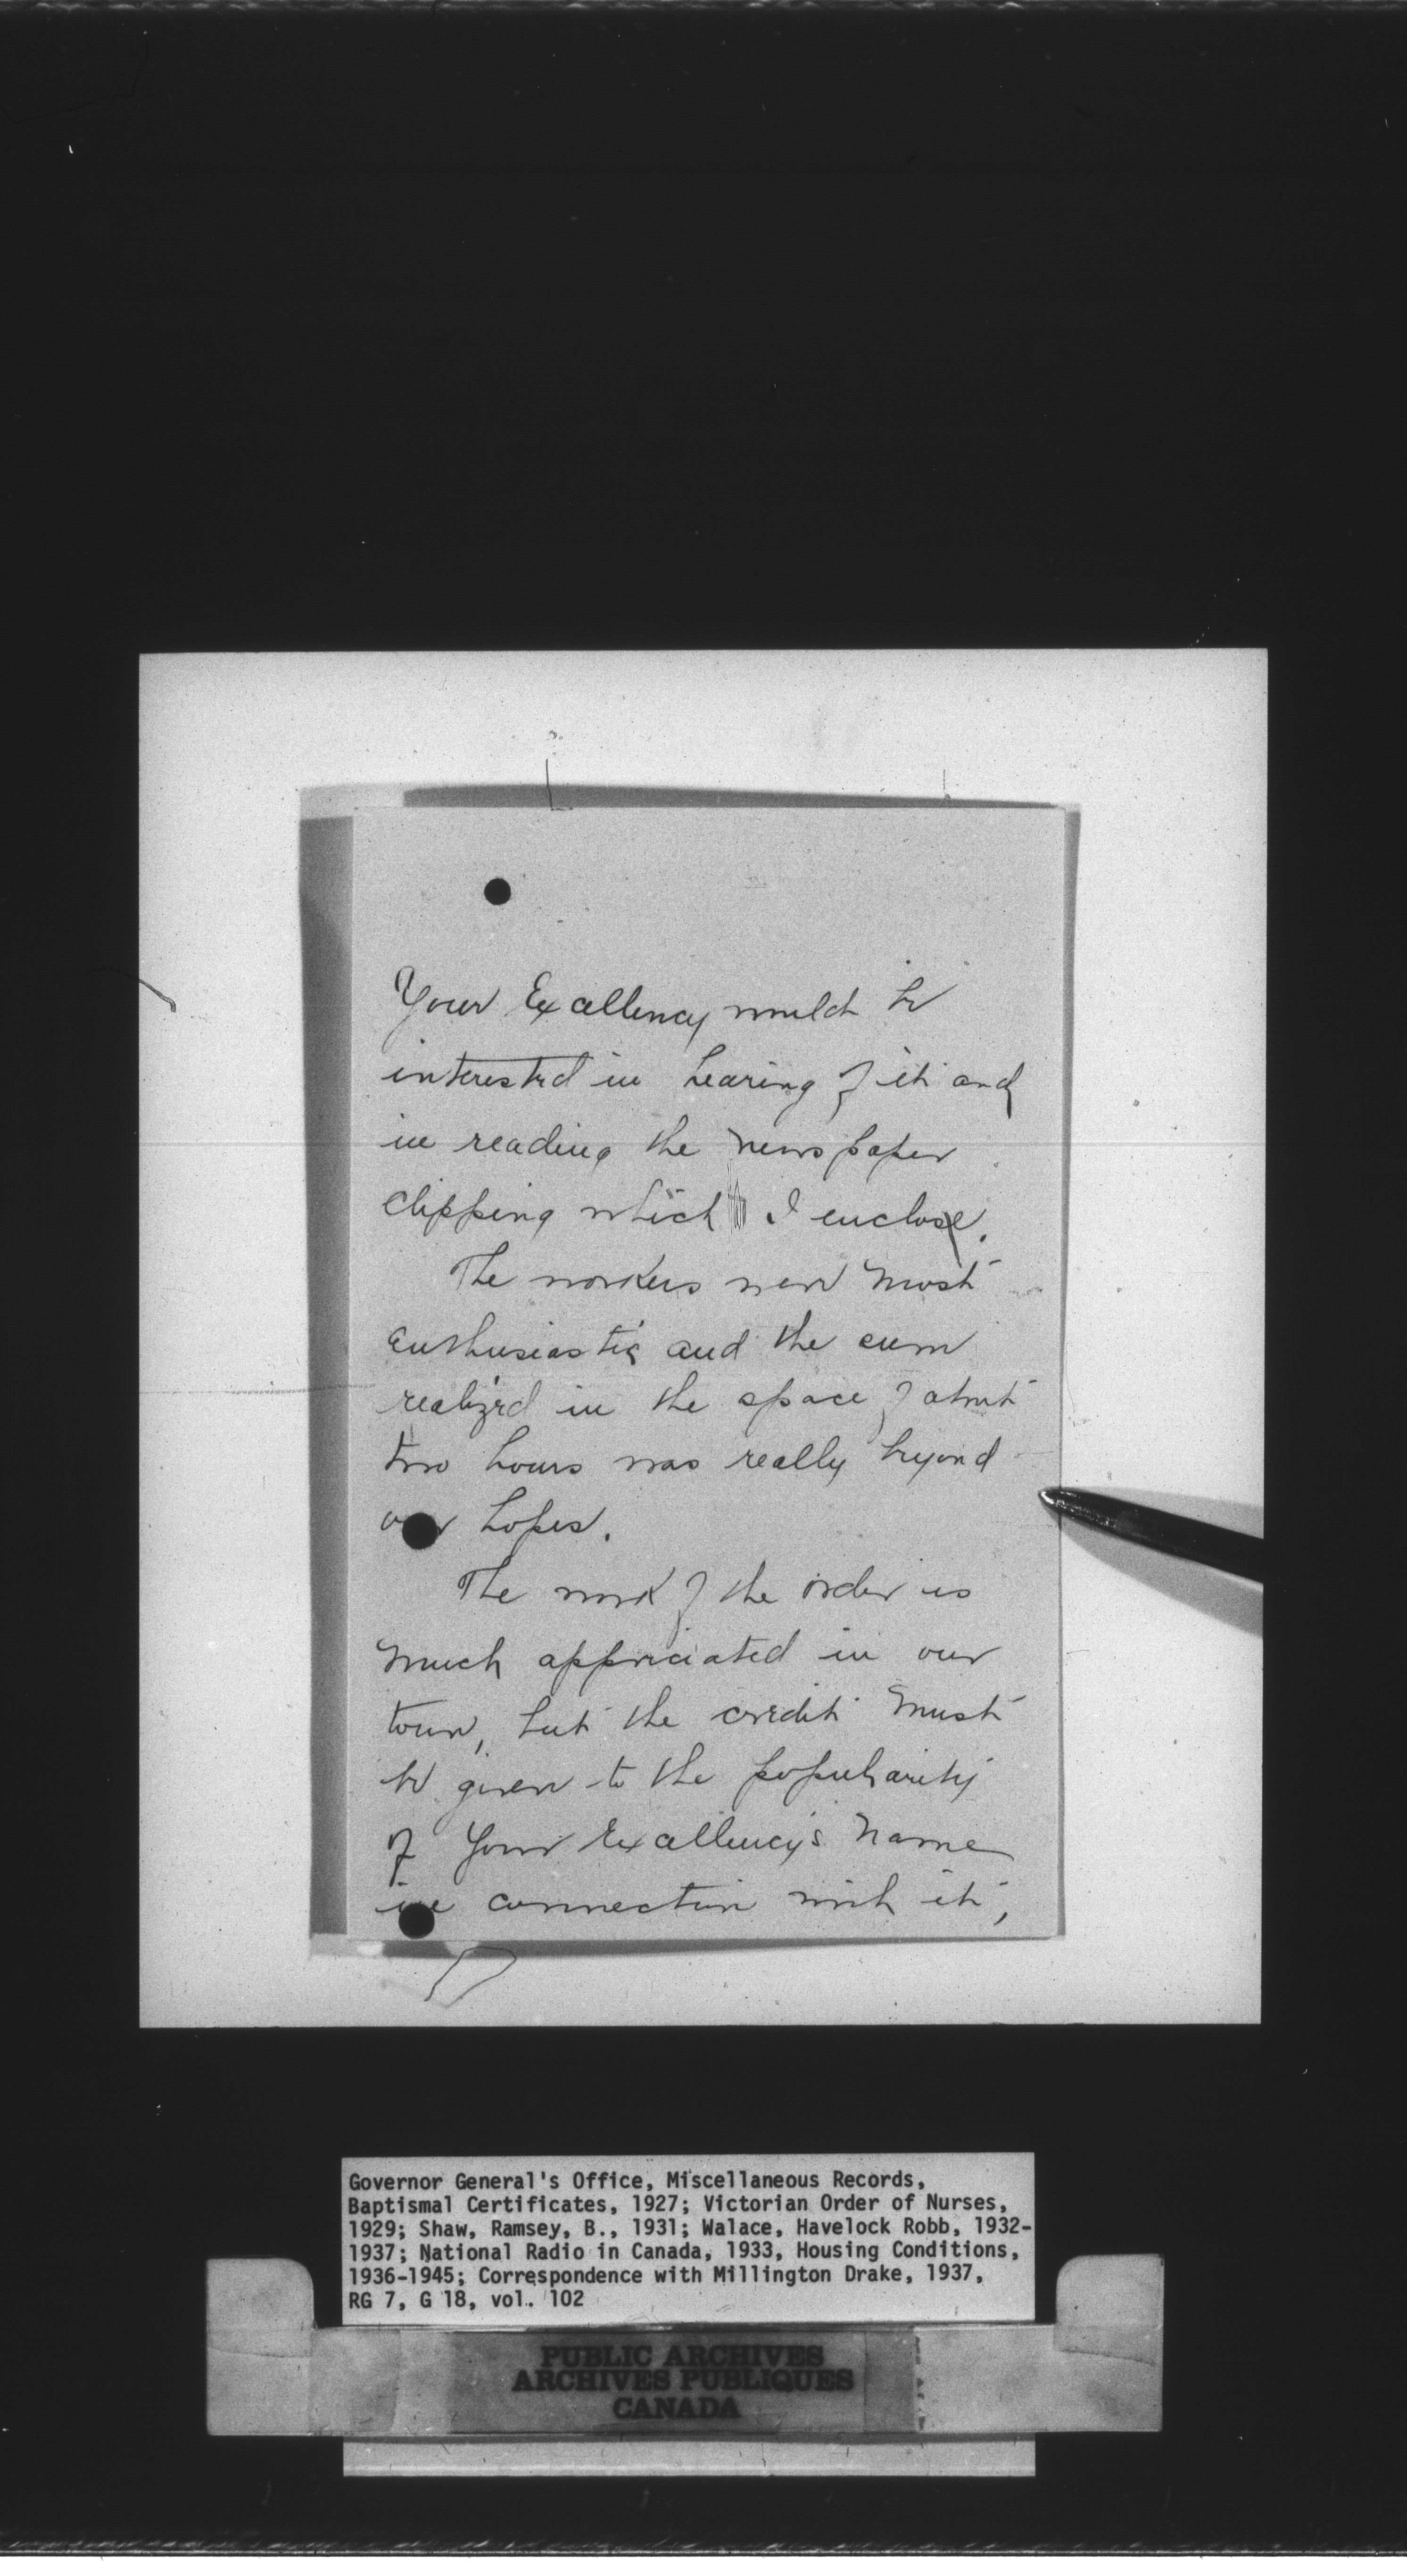 Your Excellency would be
interested in hearing of it and
in reading the newspaper
clipping which I enclose.
The workers were most
enthusiastic and the sum
realized in the space of about
two hours was really beyond
our hopes.
The work of the order is
much appreciated in our
town, but the credit must
be given to the popularity
of Your Excellency's name
in connection with it,
Governor General's Office, Miscellaneous Records,
Baptismal Certificates, 1927; Victorian Order of Nurses,
1929; Shaw, Ramsey, B., 1931; Walace, Havelock Robb, 1932-
1937; National Radio in Canada, 1933, Housing Conditions,
1936-1945; Correspondence with Millington Drake, 1937,
RG 7, G 18, vol. 102
PUBLIC ARCHIVES
ARCHIVES PUBLIQUES
CANADA